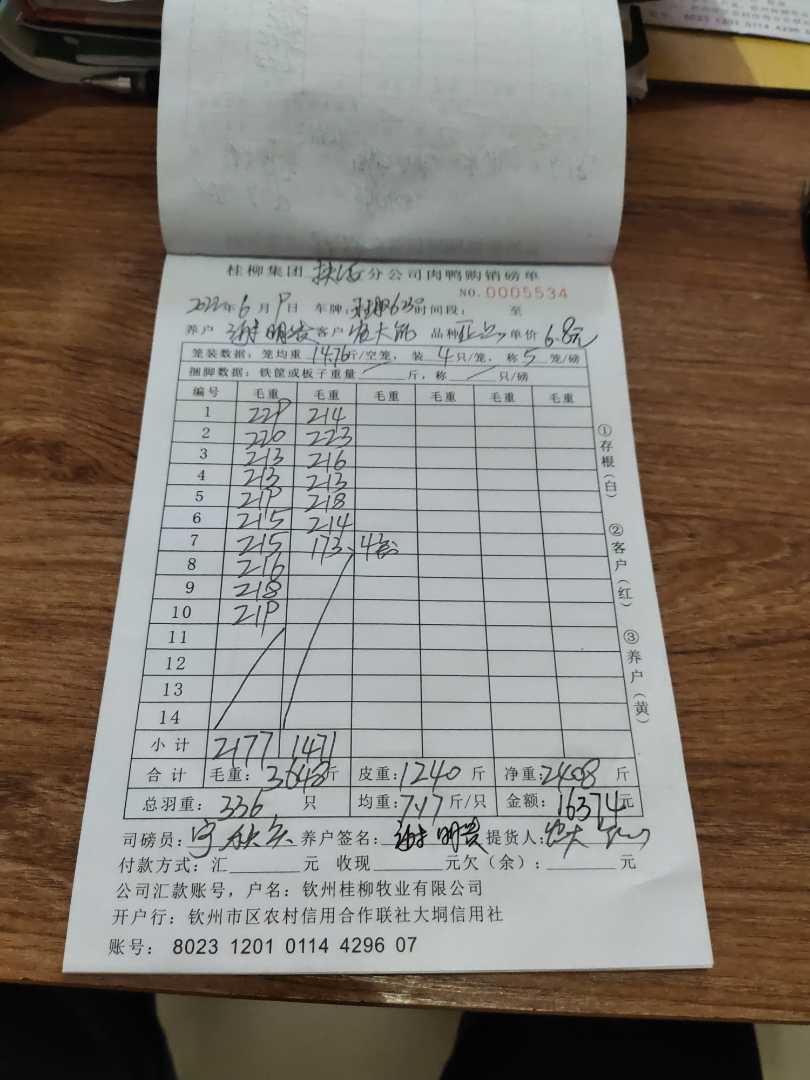 8023 1201 0114 4296
桂柳集团 分公司肉鸭购销磅单
NO.0005534
2022年6月9日 车牌: 时间段: 至
养户 谢明贵 客户 品种 单价 6.8元
笼装数据: 笼均重 14.76斤/空笼, 装 4 只/笼, 称 5 笼/磅
捆脚数据: 铁筐或板子重量 斤, 称 只/磅
编号 毛重 毛重 毛重 毛重 毛重 毛重
1 229 214
2 220 223
3 213 216
4 213 213
5 219 218
6 215 214
7 215 173 4
8 216
9 218
10 219
11
12
13
14
小计 2177 1471
合计 毛重: 3648斤 皮重: 1240 斤 净重: 2408 斤
总羽重: 336 只 均重: 7.17斤/只 金额: 16374元
司磅员: 养户签名: 谢明贵 提货人:
付款方式: 汇 元 收现 元欠(余): 元
公司汇款账号, 户名: 钦州桂柳牧业有限公司
开户行: 钦州市区农村信用合作联社大垌信用社
账号: 8023 1201 0114 4296 07
①存根(白)
②客户(红)
③养户(黄)